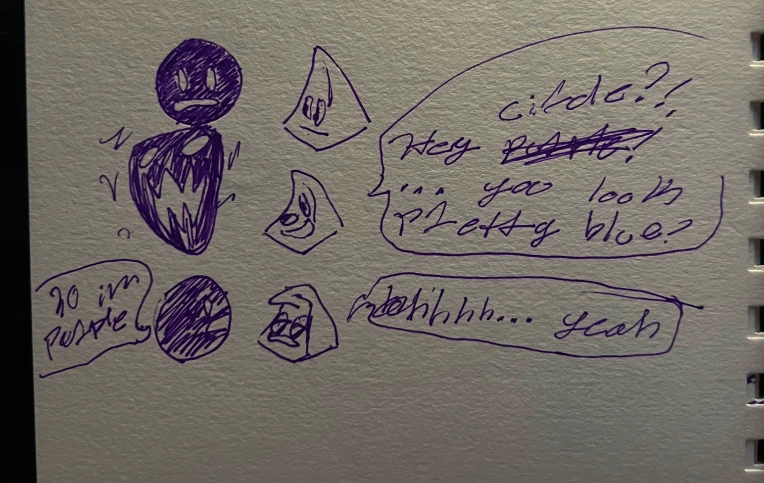 circle?!
Hey purple!
... you look
pretty blue?
no im
purple
ohhhh... yeah